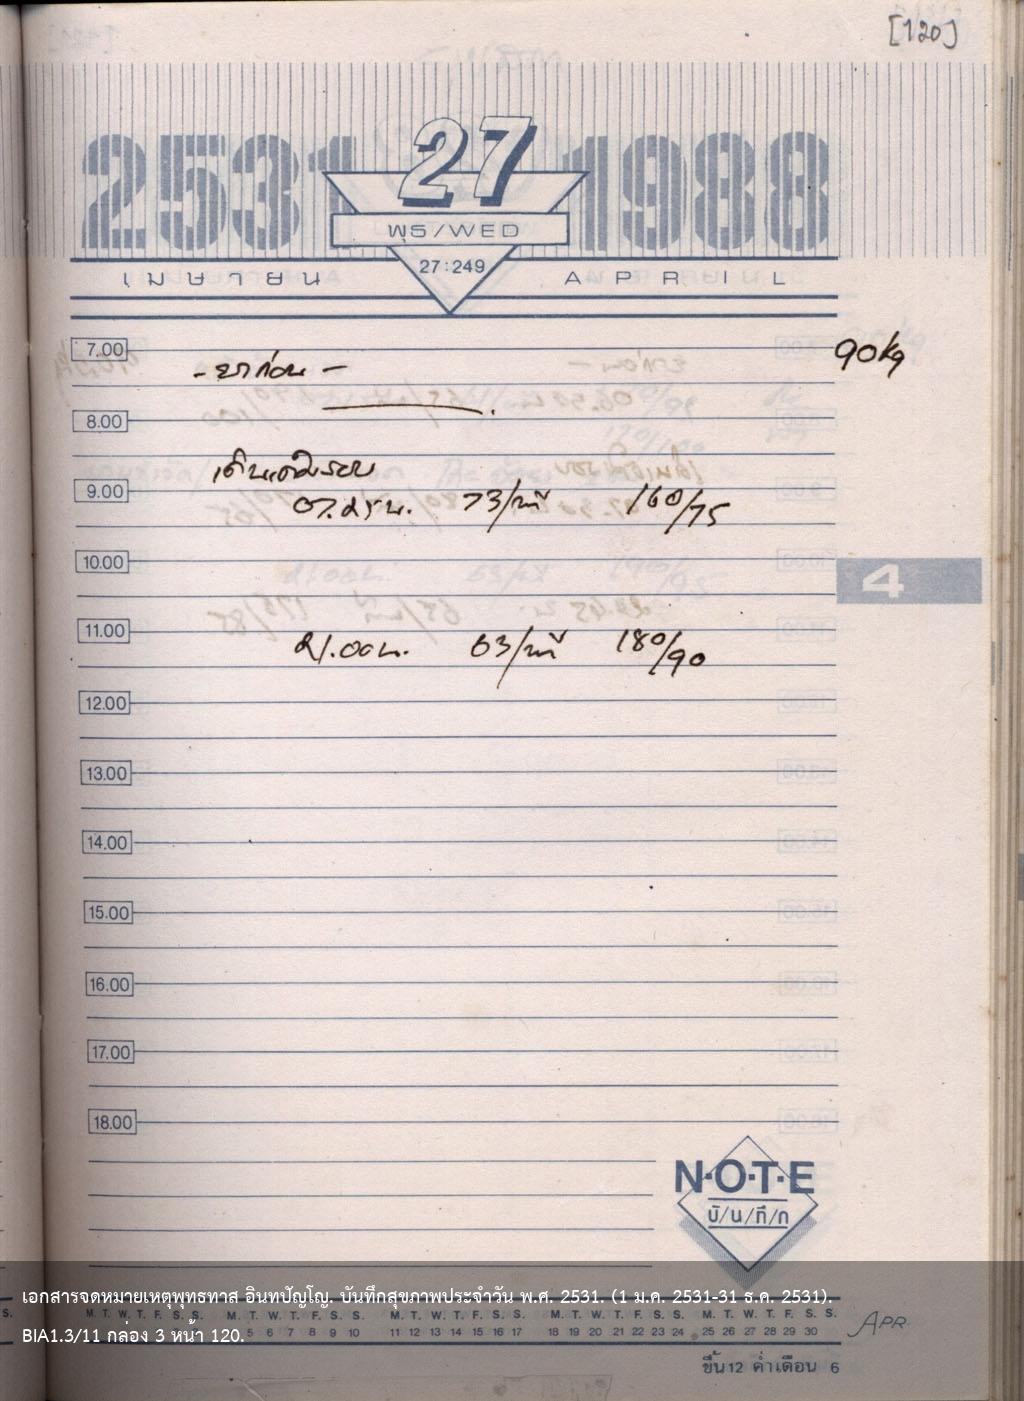 [120]
2531 27 1988
พธ/WED
27:249
เมษายน APRIL
7.00
90 kg
- ยาก่อน -
8.00
เดินเต็มรอบ
9.00
07.25 น. 73/นาที 160/75
10.00
4
11.00
21.00 น. 63/นาที 180/90
12.00
13.00
14.00
15.00
16.00
17.00
18.00
N·O·T·E
บั/น/ทึ/ก
เอกสารจดหมายเหตุพุทธทาส อินทปัญโญ. บันทึกสุขภาพประจำวัน พ.ศ. 2531. (1 ม.ค. 2531-31 ธ.ค. 2531).
M. T. W. T. F. S. S. M. T. W. T. F. S. S. M. T. W. T. F. S. S. M. T. W. T. F. S. S. M. T. W. T. F. S. S.
BIA1.3/11 กล่อง 3 หน้า 120.
5 6 7 8 9 10 11 12 13 14 15 16 17 18 19 20 21 22 23 24 25 26 27 28 29 30
APR.
ขึ้น 12 ค่ำเดือน 6